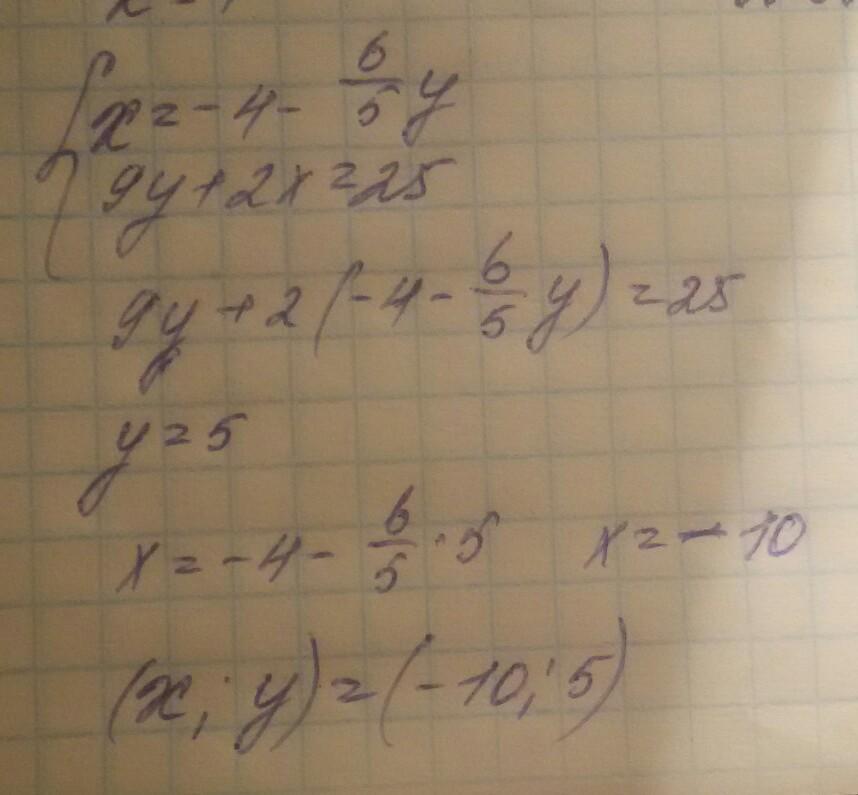 x = -4 - 6/5 y
9y + 2x = 25
9y + 2(-4 - 6/5 y) = 25
y = 5
x = -4 - 6/5 · 5 x = -10
(x; y) = (-10; 5)